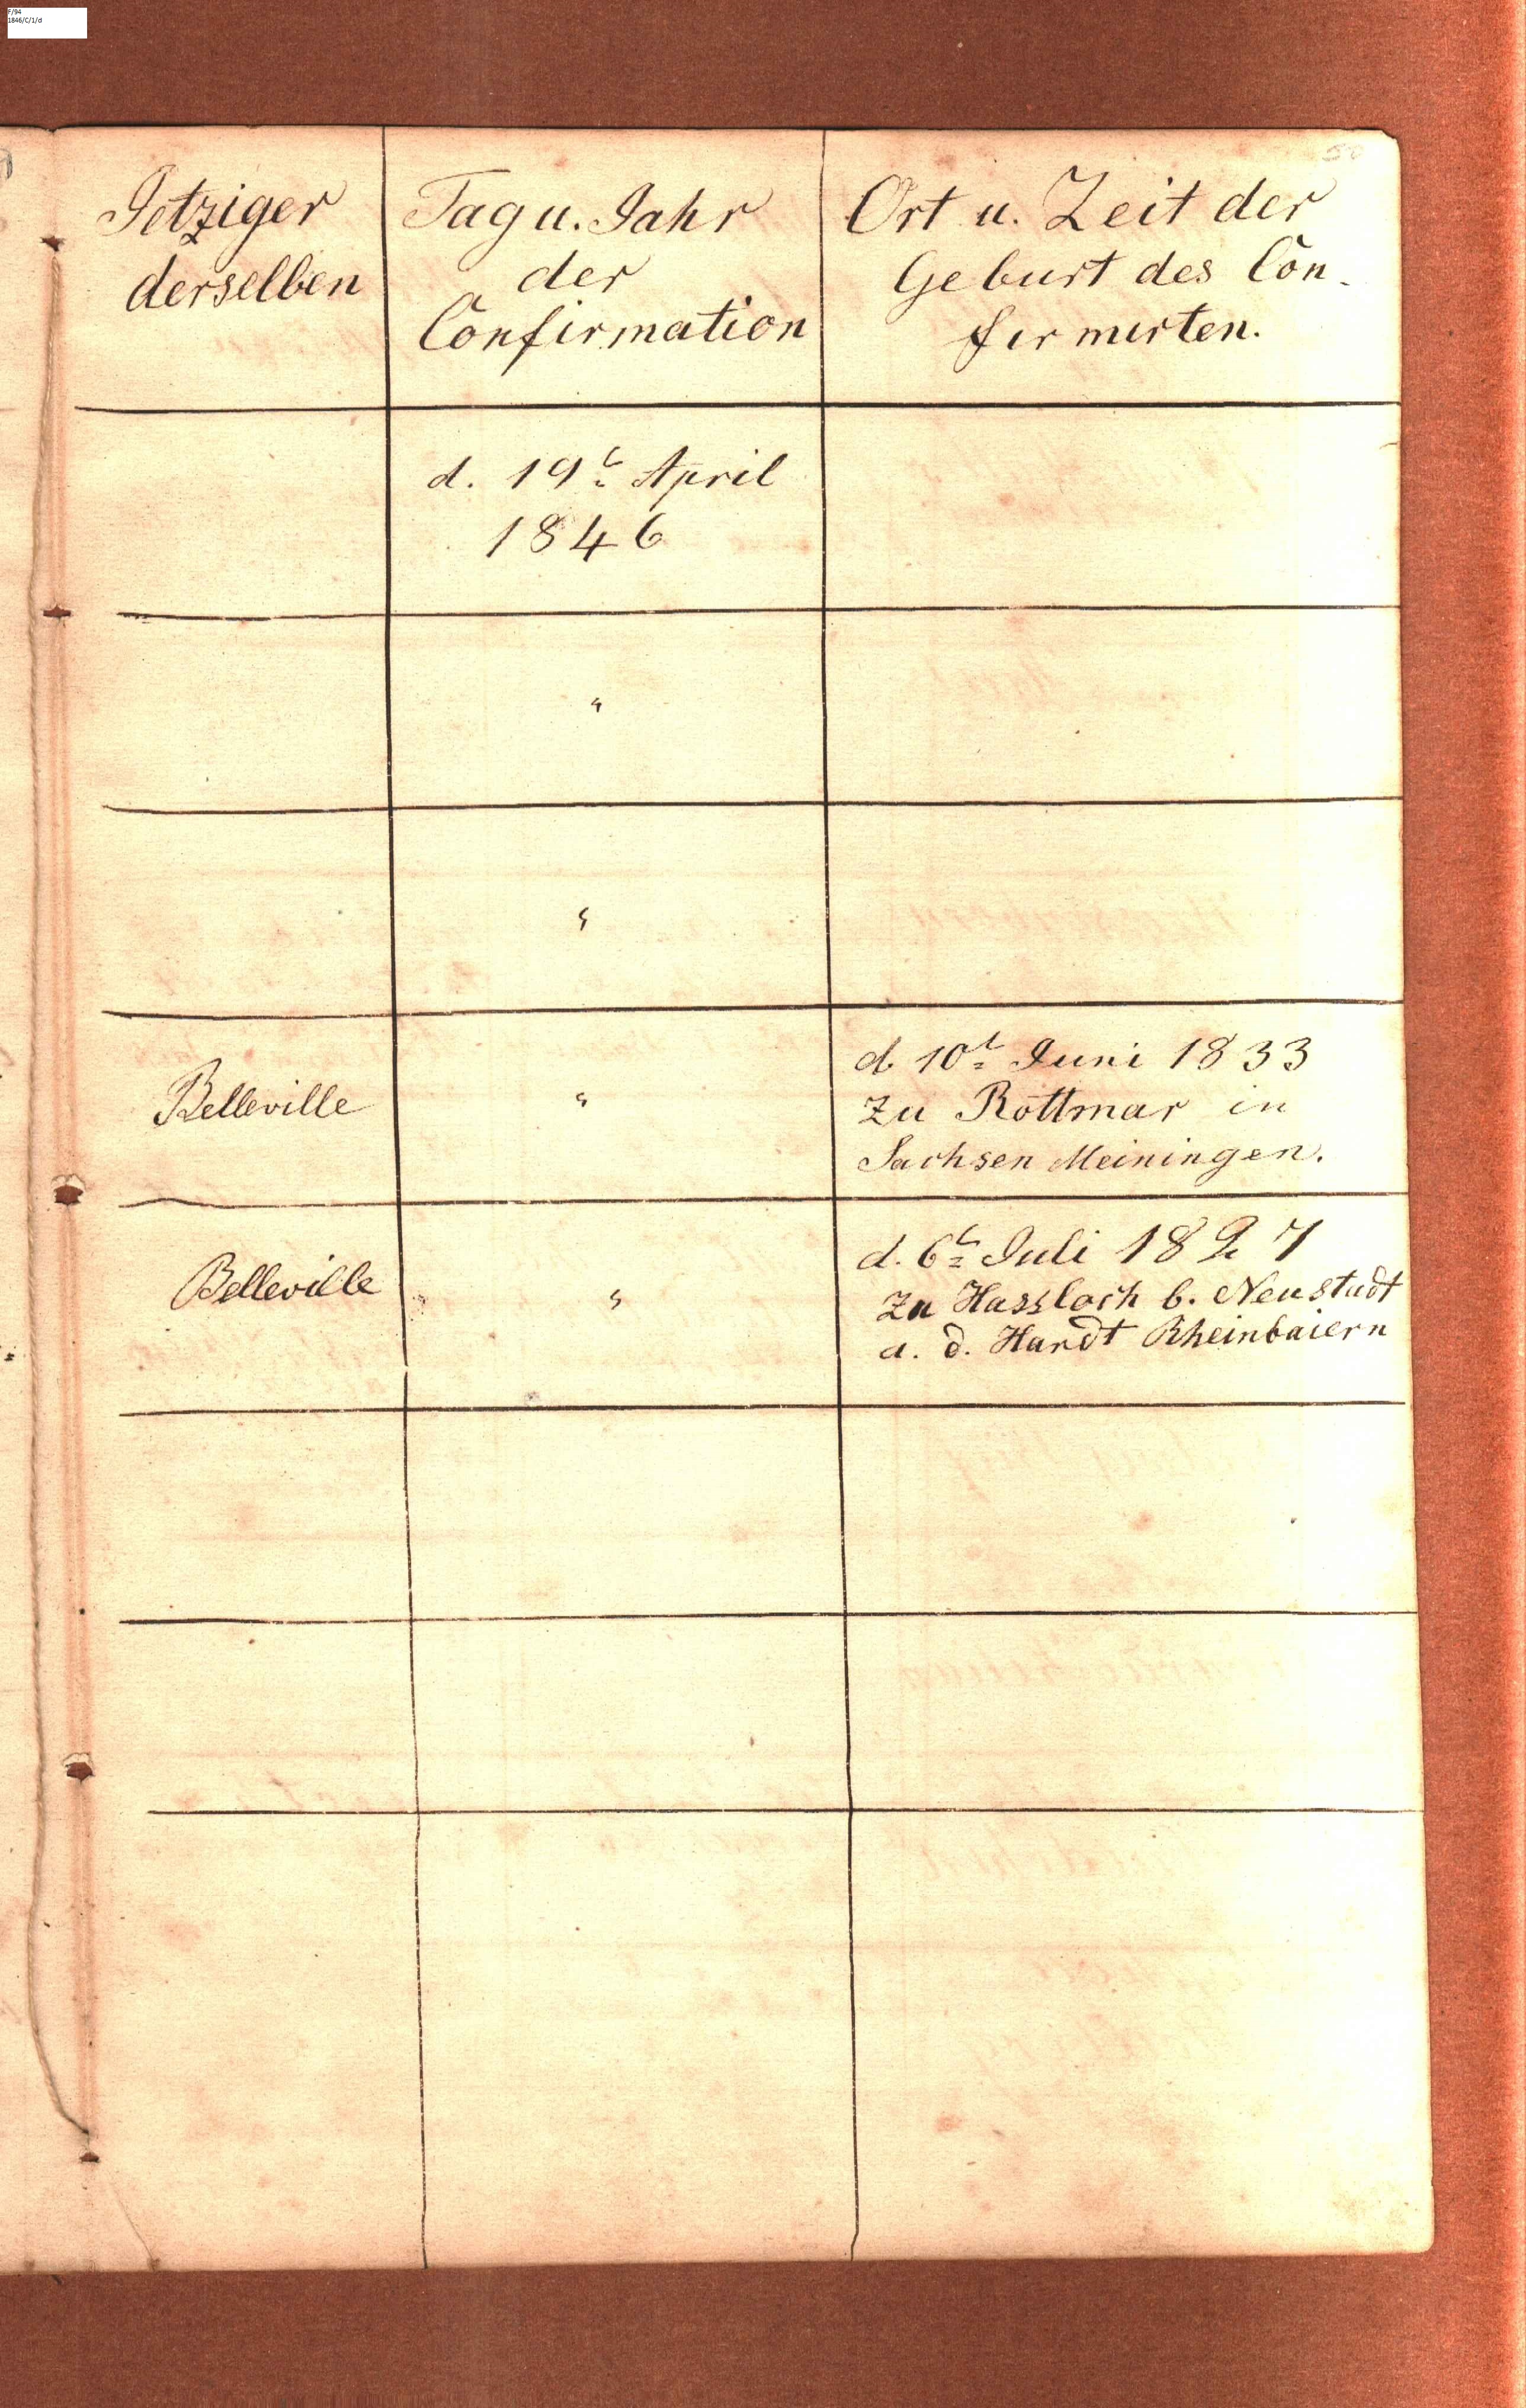 F/94
1846/C/1/d
50
Jetziger
derselben
Tag u. Jahr
der
Confirmation
Ort u. Zeit der
Geburt des Con-
firmirten.
d. 19t April
1846
"
"
Belleville
"
d. 10t Juni 1833
zu Rottmar in
Sachsen Meiningen.
Belleville
"
d. 6t Juli 1827
zu Hassloch b. Neustadt
a. d. Hardt Rheinbaiern